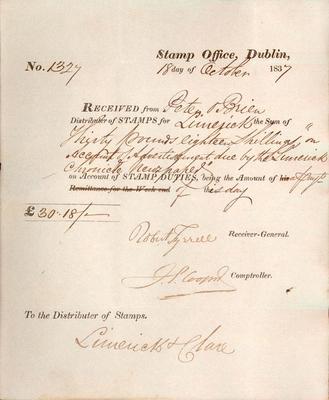 Stamp Office, Dublin,
No. 1327 18 day of October 1837
RECEIVED from Peter O'Brien
Distributer of STAMPS for Limerick the Sum of
Thirty Pounds eighteen Shillings "on
Account of Advertisement due by the Limerick
Chronicle Newspaper"
on Account of STAMP DUTIES, being the Amount of his
Remittance for the Week end of this day
£30.18/-
Robert Tyrrell Receiver-General.
Comptroller.
To the Distributer of Stamps.
Limerick & Clare